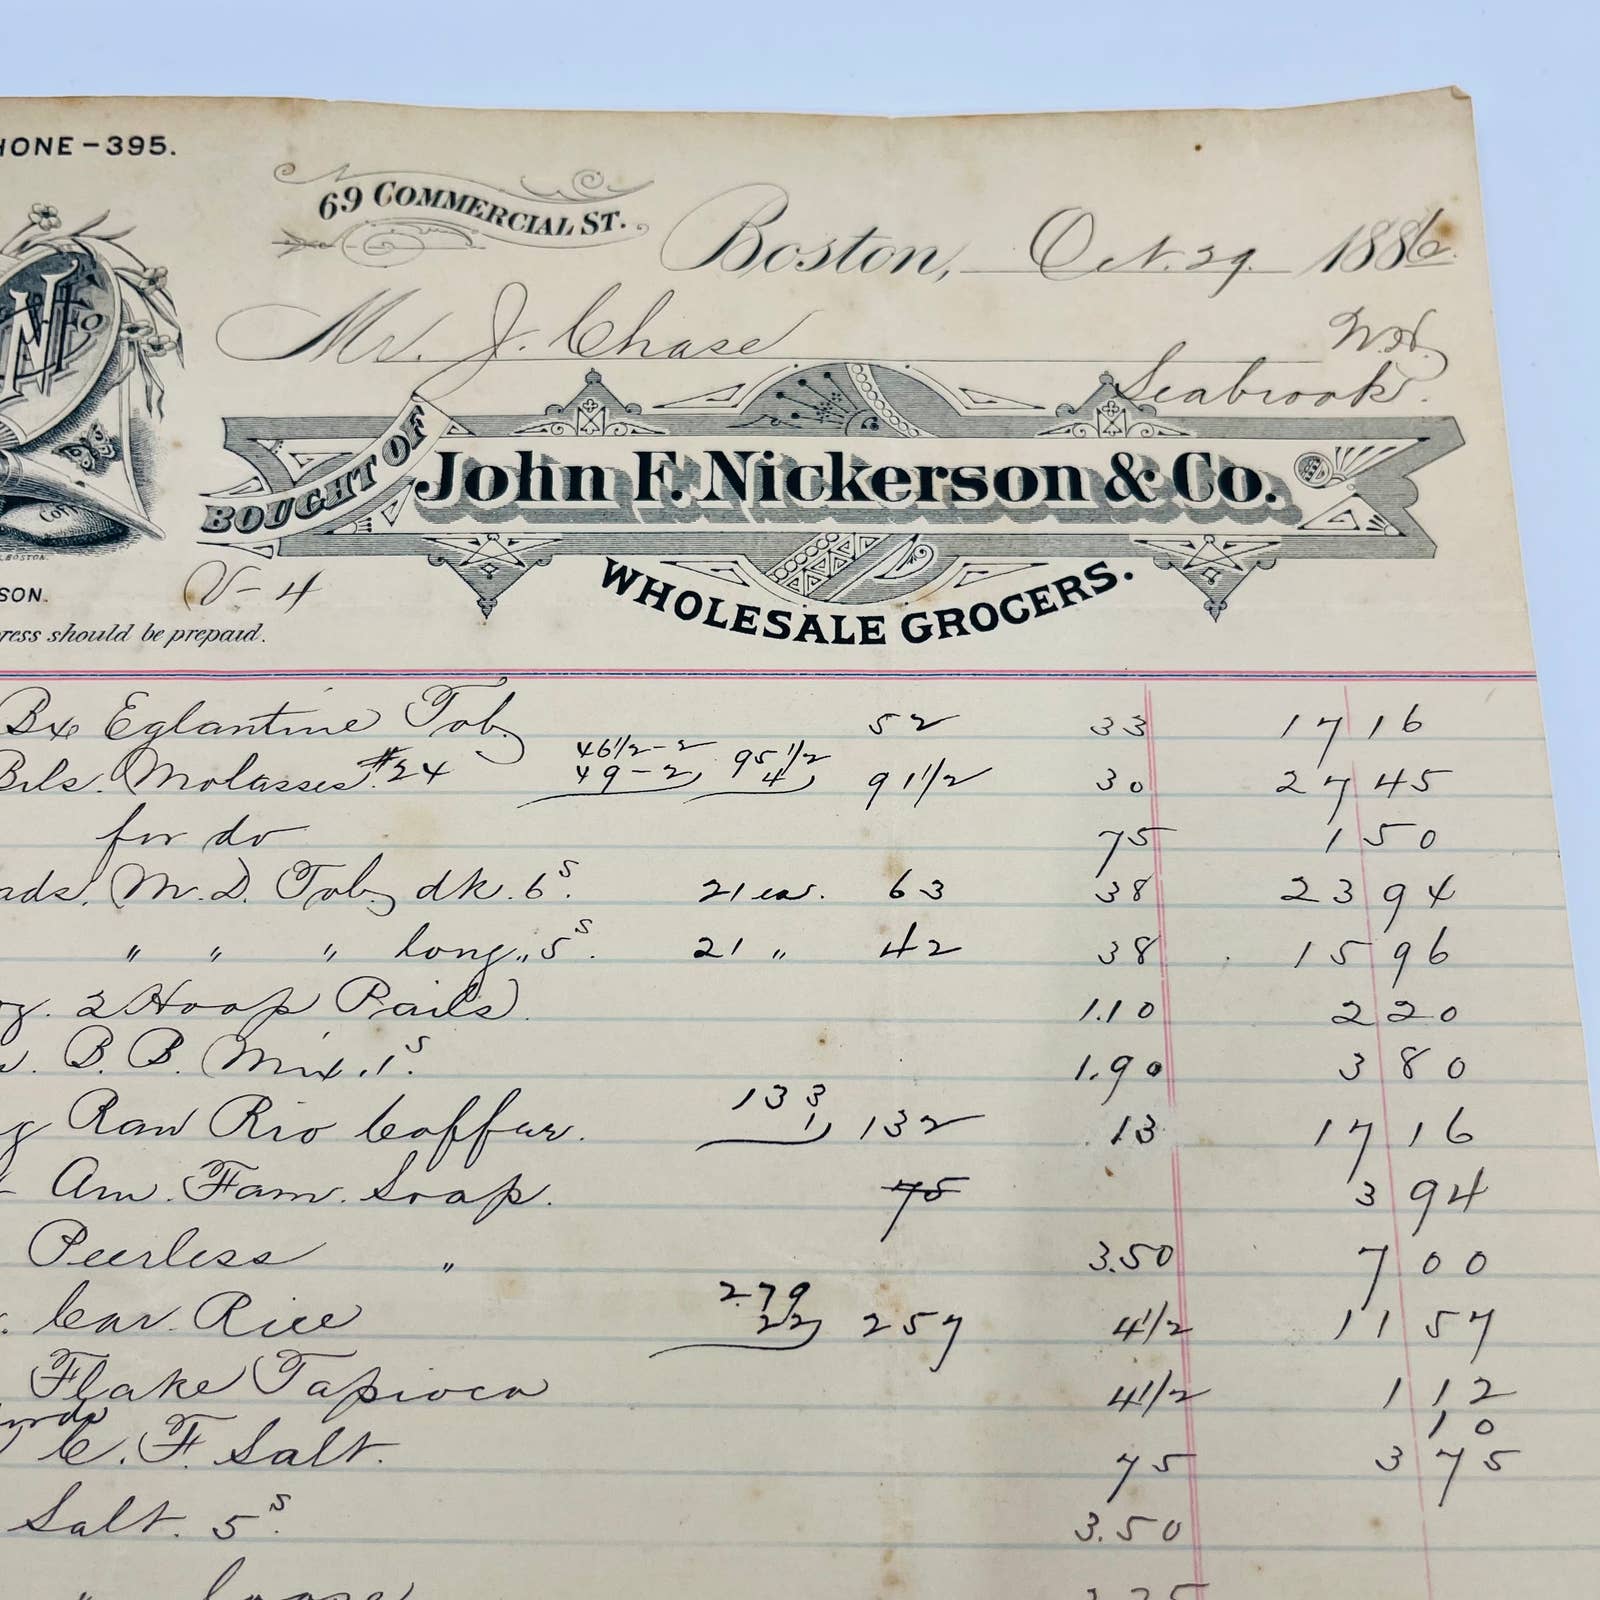 HONE-395.
69 COMMERCIAL ST.
Boston, Oct. 29. 1886.
Mr. J. Chase
N.H.
Seabrook.
BOUGHT OF John F. Nickerson & Co.
WHOLESALE GROCERS.
BOSTON.
SON.
V-4
ress should be prepaid.
Bx Eglantine Tob 52 33 17 16
46 1/2-2 95 1/2
Bls. Molasses #24 49-2 4 91 1/2 30 27 45
for do 75 1 50
ads. M. D. Tob dk. 6s. 21 ea. 63 38 23 94
" " " long " 5s. 21 " 42 38 15 96
2 Hoop Pails. 1.10 2 20
B. B. Mix. 1s. 1.90 3 80
133
Raw Rio Coffee. 1 132 13 17 16
Am. Fam. Soap. 75 3 94
Peerless " 3.50 7 00
279
Car. Rice 22 257 4 1/2 11 57
Flake Tapioca 4 1/2 1 12
10
C. F. Salt. 75 3 75
Salt. 5s. 3.50
" loose